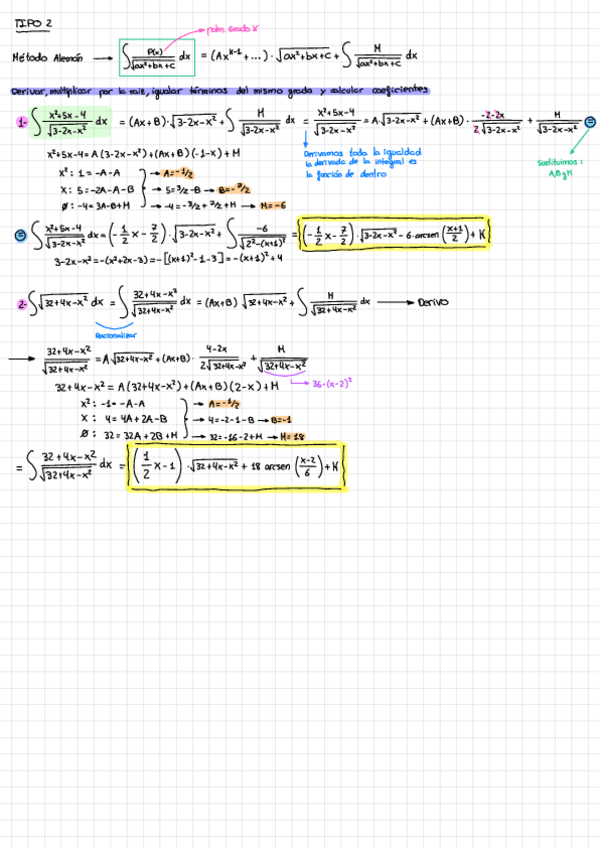 TIPO 2
polin. Grado K
Método Alemán → ∫ P(x)/√(ax²+bx+c) dx = (Ax^(K-1)+...)·√(ax²+bx+c) + ∫ M/√(ax²+bx+c) dx
Derivar, multiplicar por la raíz, igualar términos del mismo grado y calcular coeficientes
1- ∫ (x²+5x-4)/√(3-2x-x²) dx = (Ax+B)·√(3-2x-x²) + ∫ M/√(3-2x-x²) dx = (x²+5x-4)/√(3-2x-x²) = A·√(3-2x-x²) + (Ax+B)·(-2-2x)/(2·√(3-2x-x²)) + M/√(3-2x-x²) =
Derivamos toda la igualdad
la derivada de la integral es
la función de dentro
Sustituimos:
A, B y M
x²+5x-4 = A(3-2x-x²)+(Ax+B)(-1-x)+M
x²: 1 = -A-A → A=-1/2
x: 5 = -2A-A-B → 5=3/2-B → B=-7/2
Ø: -4=3A-B+M → -4=-3/2+7/2+M → M=-6
= ∫ (x²+5x-4)/√(3-2x-x²) dx = (-1/2 x - 7/2)·√(3-2x-x²) + ∫ -6/√(2²-(x+1)²) = (-1/2 x - 7/2)·√(3-2x-x²) - 6·arcsen((x+1)/2) + K
3-2x-x² = -(x²+2x-3) = -[(x+1)²-1-3] = -(x+1)²+4
2- ∫ √(32+4x-x²) dx = ∫ (32+4x-x²)/√(32+4x-x²) dx = (Ax+B) √(32+4x-x²) + ∫ M/√(32+4x-x²) dx → Derivo
Racionalizar
→ (32+4x-x²)/√(32+4x-x²) = A√(32+4x-x²) + (Ax+B)·(4-2x)/(2√(32+4x-x²)) + M/√(32+4x-x²)
36-(x-2)²
32+4x-x² = A(32+4x-x²)+(Ax+B)(2-x)+M
x²: -1 = -A-A → A=-1/2
x: 4=4A+2A-B → 4=-2-1-B → B=-1
Ø: 32=32A+2B+M → 32=-16-2+M → M=18
= ∫ (32+4x-x²)/√(32+4x-x²) dx = (1/2 x - 1)·√(32+4x-x²) + 18 arcsen((x-2)/6) + K